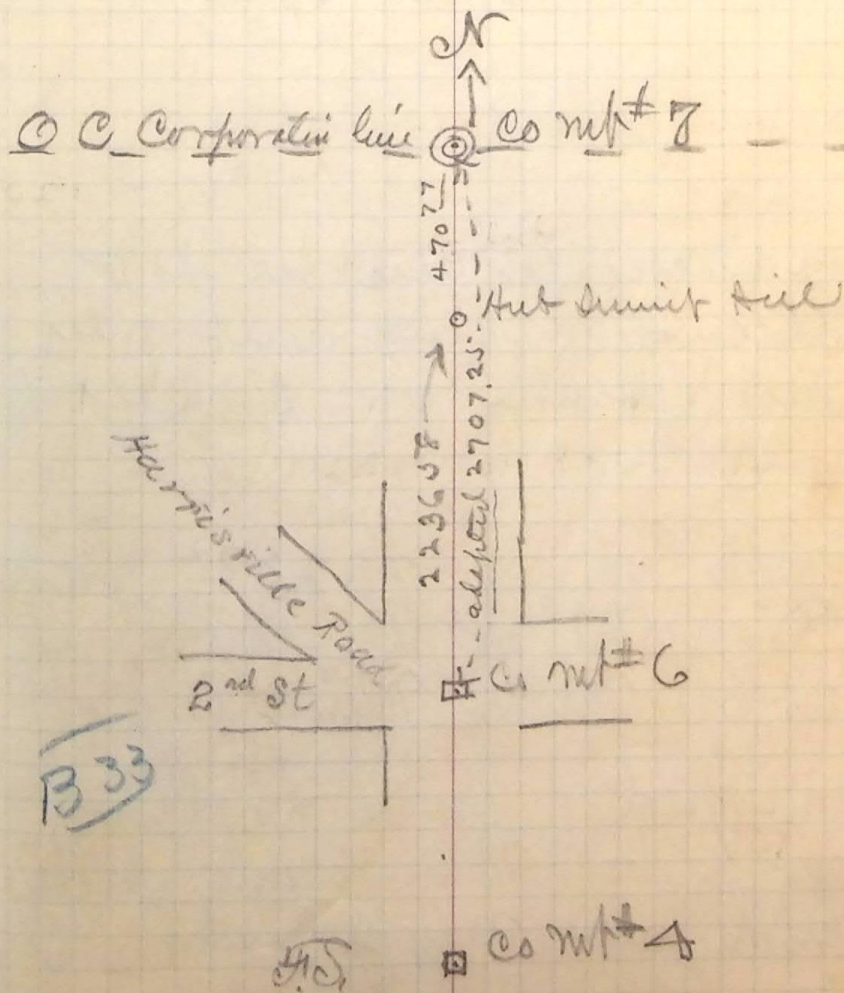 N
O C Corporatin line Co mp# 7
470 77
Hub Summit Hill
2236 48
adopted 2707.25
Harrisville Road
2nd St
Co mp# 6
B 33
Co mp# 4